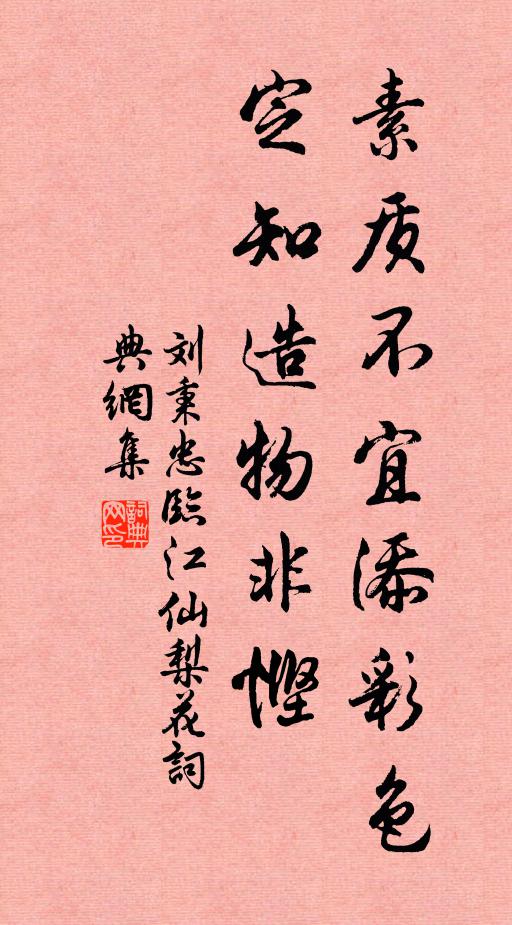 素质不宜添彩色
定知造物非悭
刘秉忠临江仙梨花詞
典網集
詞典網印